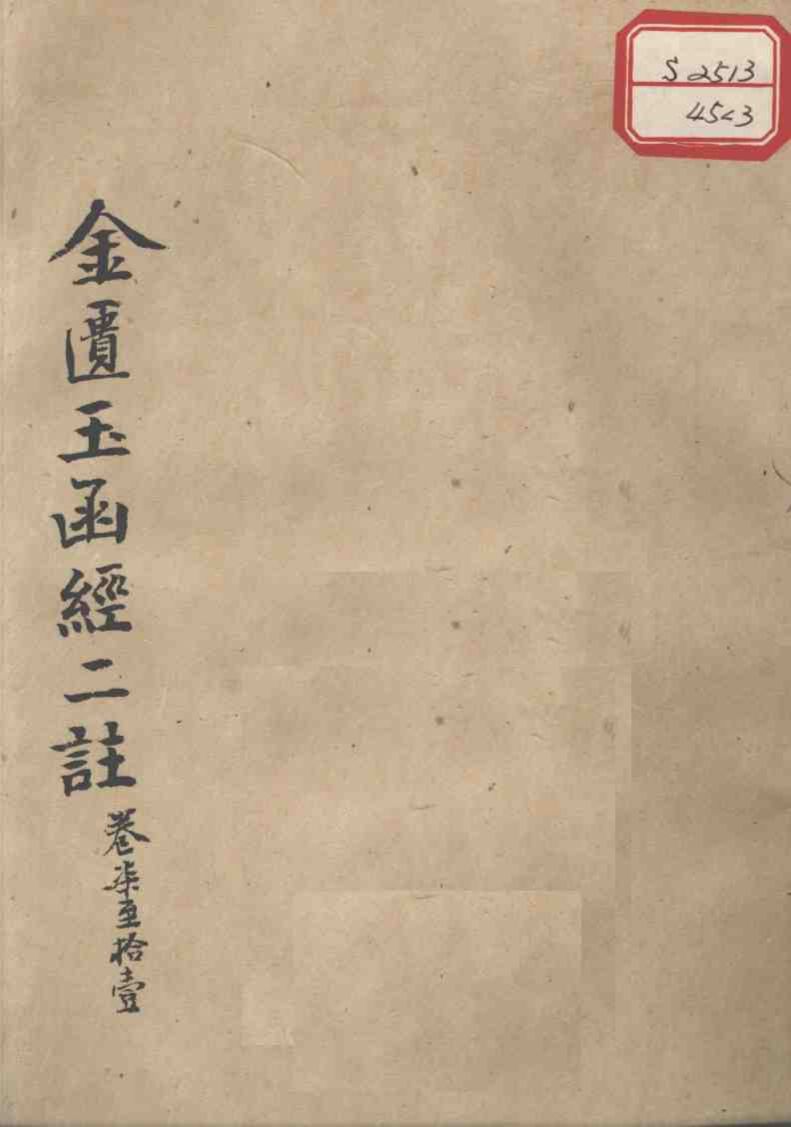 金匱玉函經二註
卷柒至拾壹
S 2513
45<3